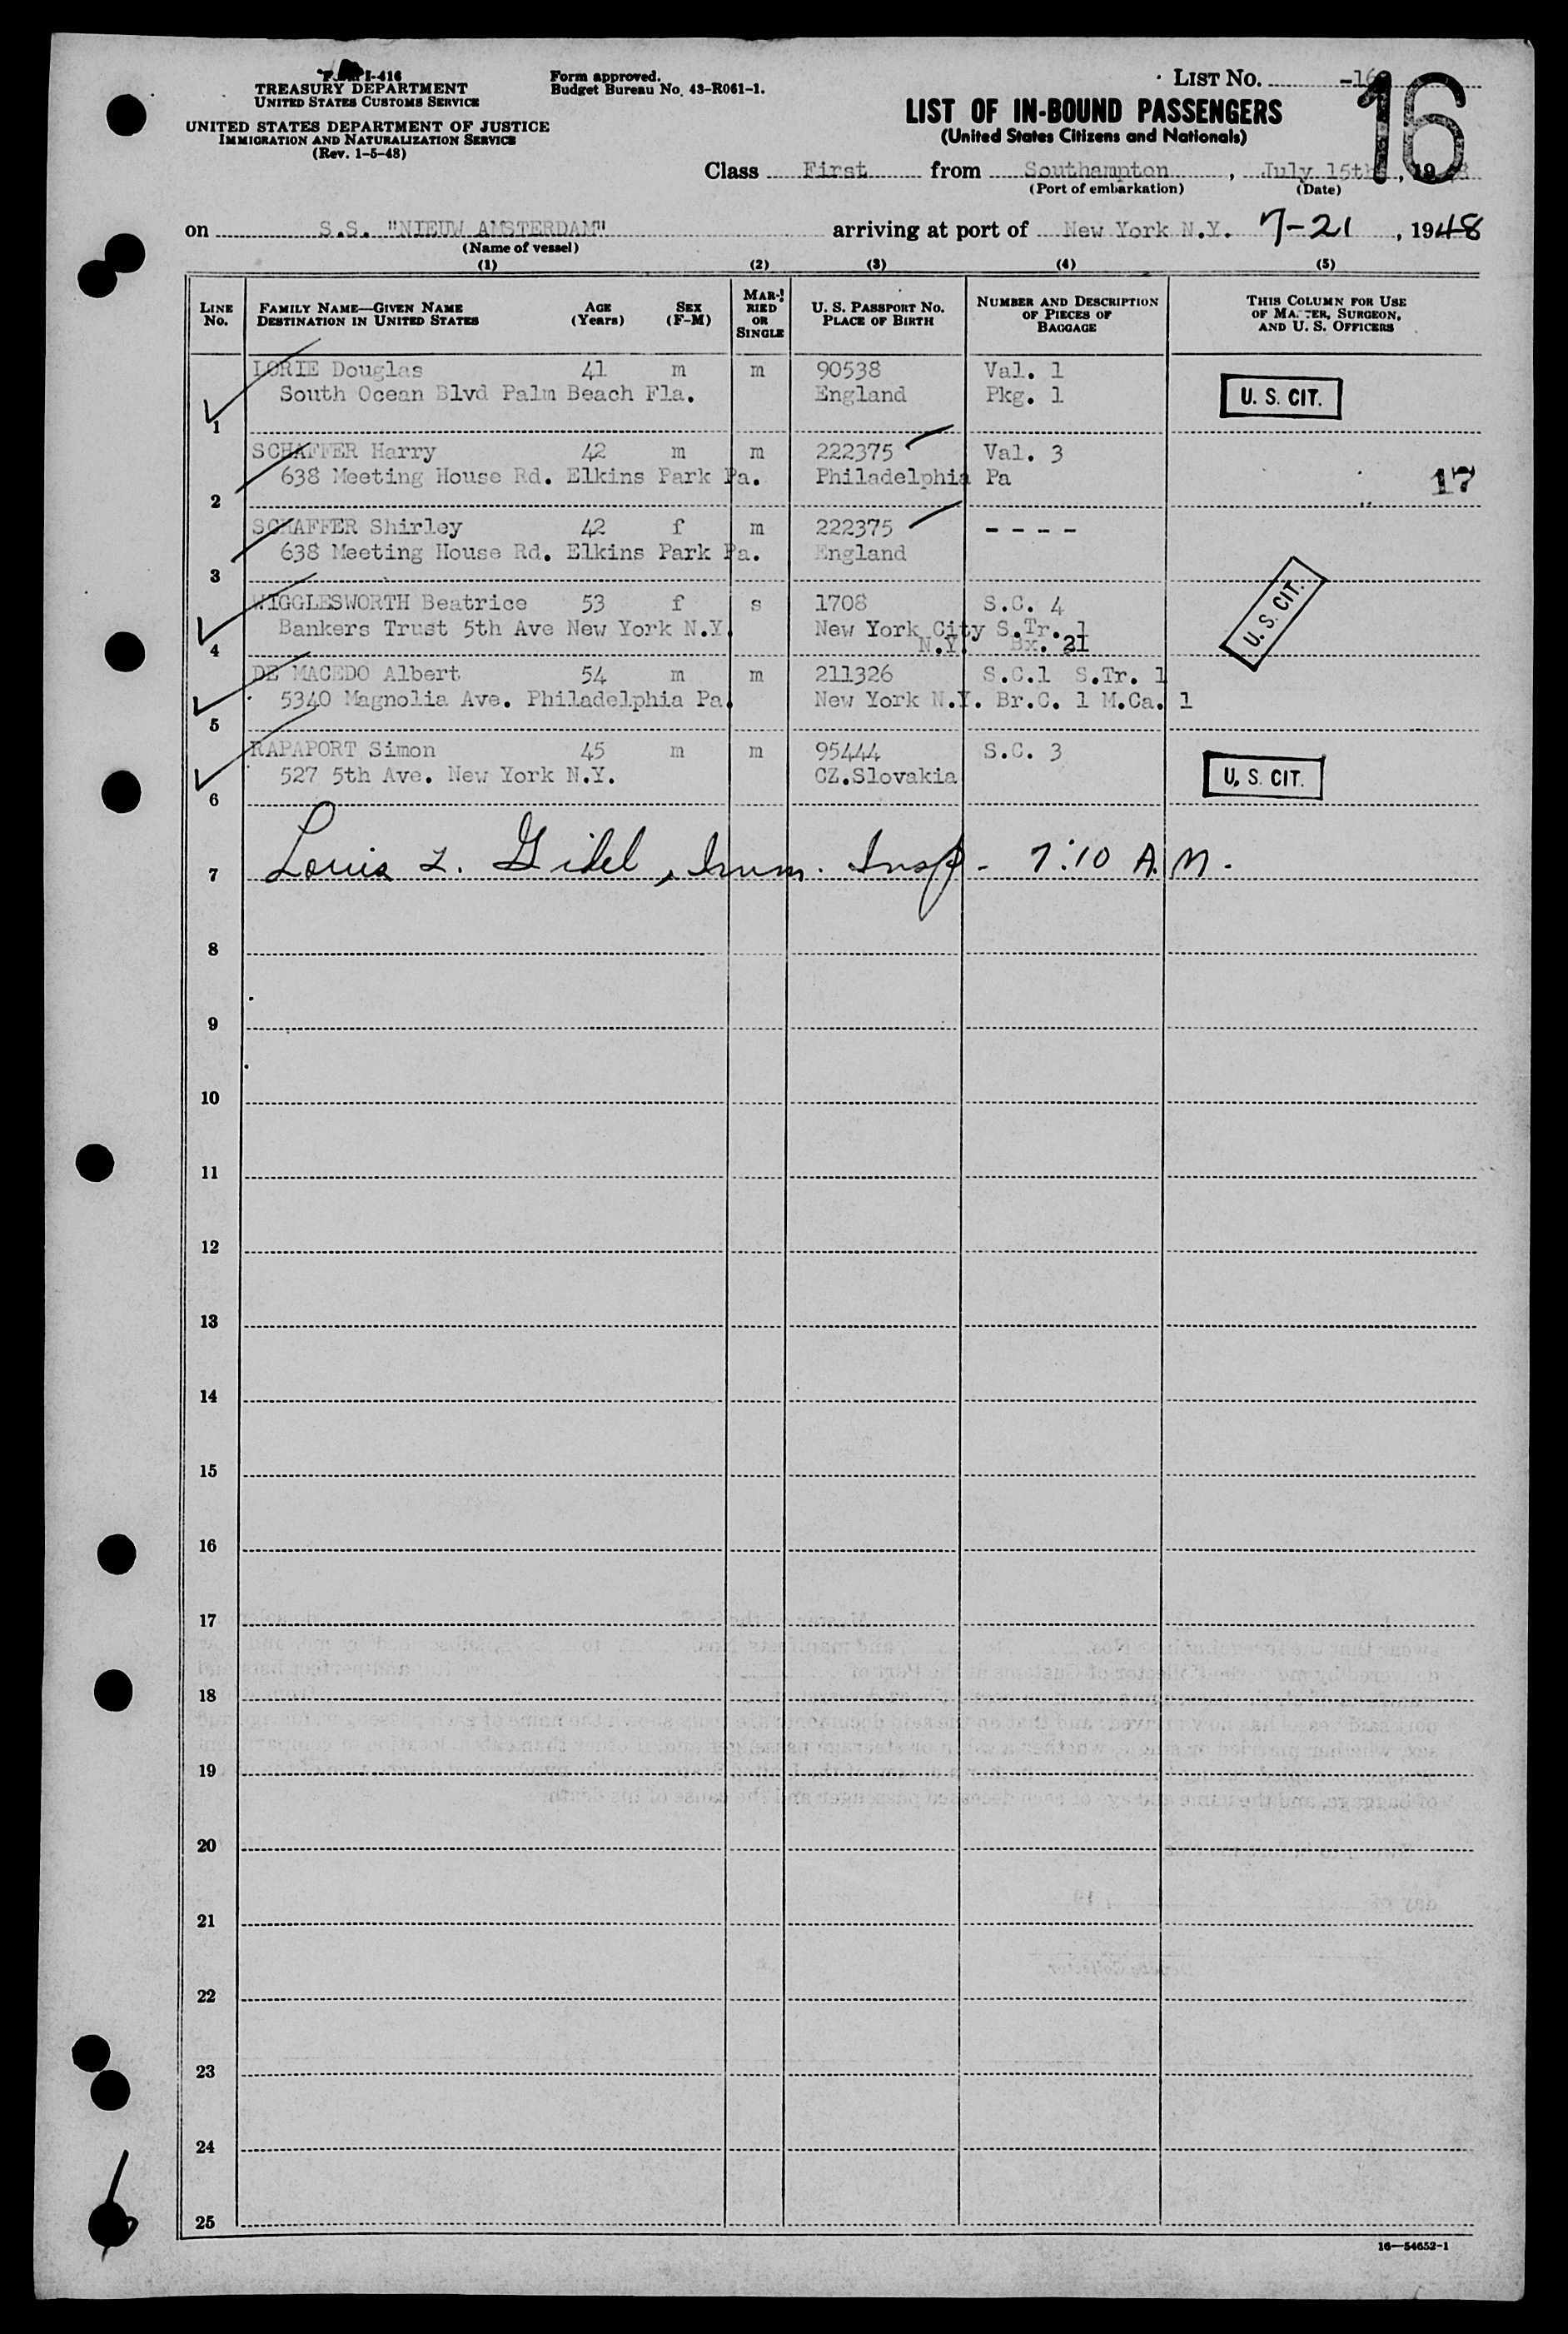 FORM I-416
TREASURY DEPARTMENT
UNITED STATES CUSTOMS SERVICE
UNITED STATES DEPARTMENT OF JUSTICE
IMMIGRATION AND NATURALIZATION SERVICE
(Rev. 1-5-48)
Form approved.
Budget Bureau No. 43-R061-1.
LIST No. -16-
16
LIST OF IN-BOUND PASSENGERS
(United States Citizens and Nationals)
Class First from Southampton, July 15th, 1948
(Port of embarkation) (Date)
on S.S. "NIEUW AMSTERDAM" arriving at port of New York N.Y. 7-21, 1948
(Name of vessel)
(1) (2) (3) (4) (5)
LINE No. FAMILY NAME—GIVEN NAME DESTINATION IN UNITED STATES AGE (Years) SEX (F-M) MARRIED OR SINGLE U. S. PASSPORT No. PLACE OF BIRTH NUMBER AND DESCRIPTION OF PIECES OF BAGGAGE THIS COLUMN FOR USE OF MASTER, SURGEON, AND U. S. OFFICERS
LORIE Douglas 41 m m 90538 Val. 1
South Ocean Blvd Palm Beach Fla. England Pkg. 1 U. S. CIT.
1
SCHAFFER Harry 42 m m 222375 Val. 3
638 Meeting House Rd. Elkins Park Pa. Philadelphia Pa 17
2
SCHAFFER Shirley 42 f m 222375 - - - -
638 Meeting House Rd. Elkins Park Pa. England
3
WIGGLESWORTH Beatrice 53 f s 1708 S.C. 4
Bankers Trust 5th Ave New York N.Y. New York City S.Tr. 1 U. S. CIT.
4 N.Y. Bx. 21
DE MACEDO Albert 54 m m 211326 S.C.1 S.Tr. 1
5340 Magnolia Ave. Philadelphia Pa. New York N.Y. Br.C. 1 M.Ca. 1
5
RAPAPORT Simon 45 m m 95444 S.C. 3
527 5th Ave. New York N.Y. CZ.Slovakia U. S. CIT.
6
7 Louis L. Gidel, Imm. Insp - 7:10 A.M.
8
9
10
11
12
13
14
15
16
17
18
19
20
21
22
23
24
25
16—54652-1